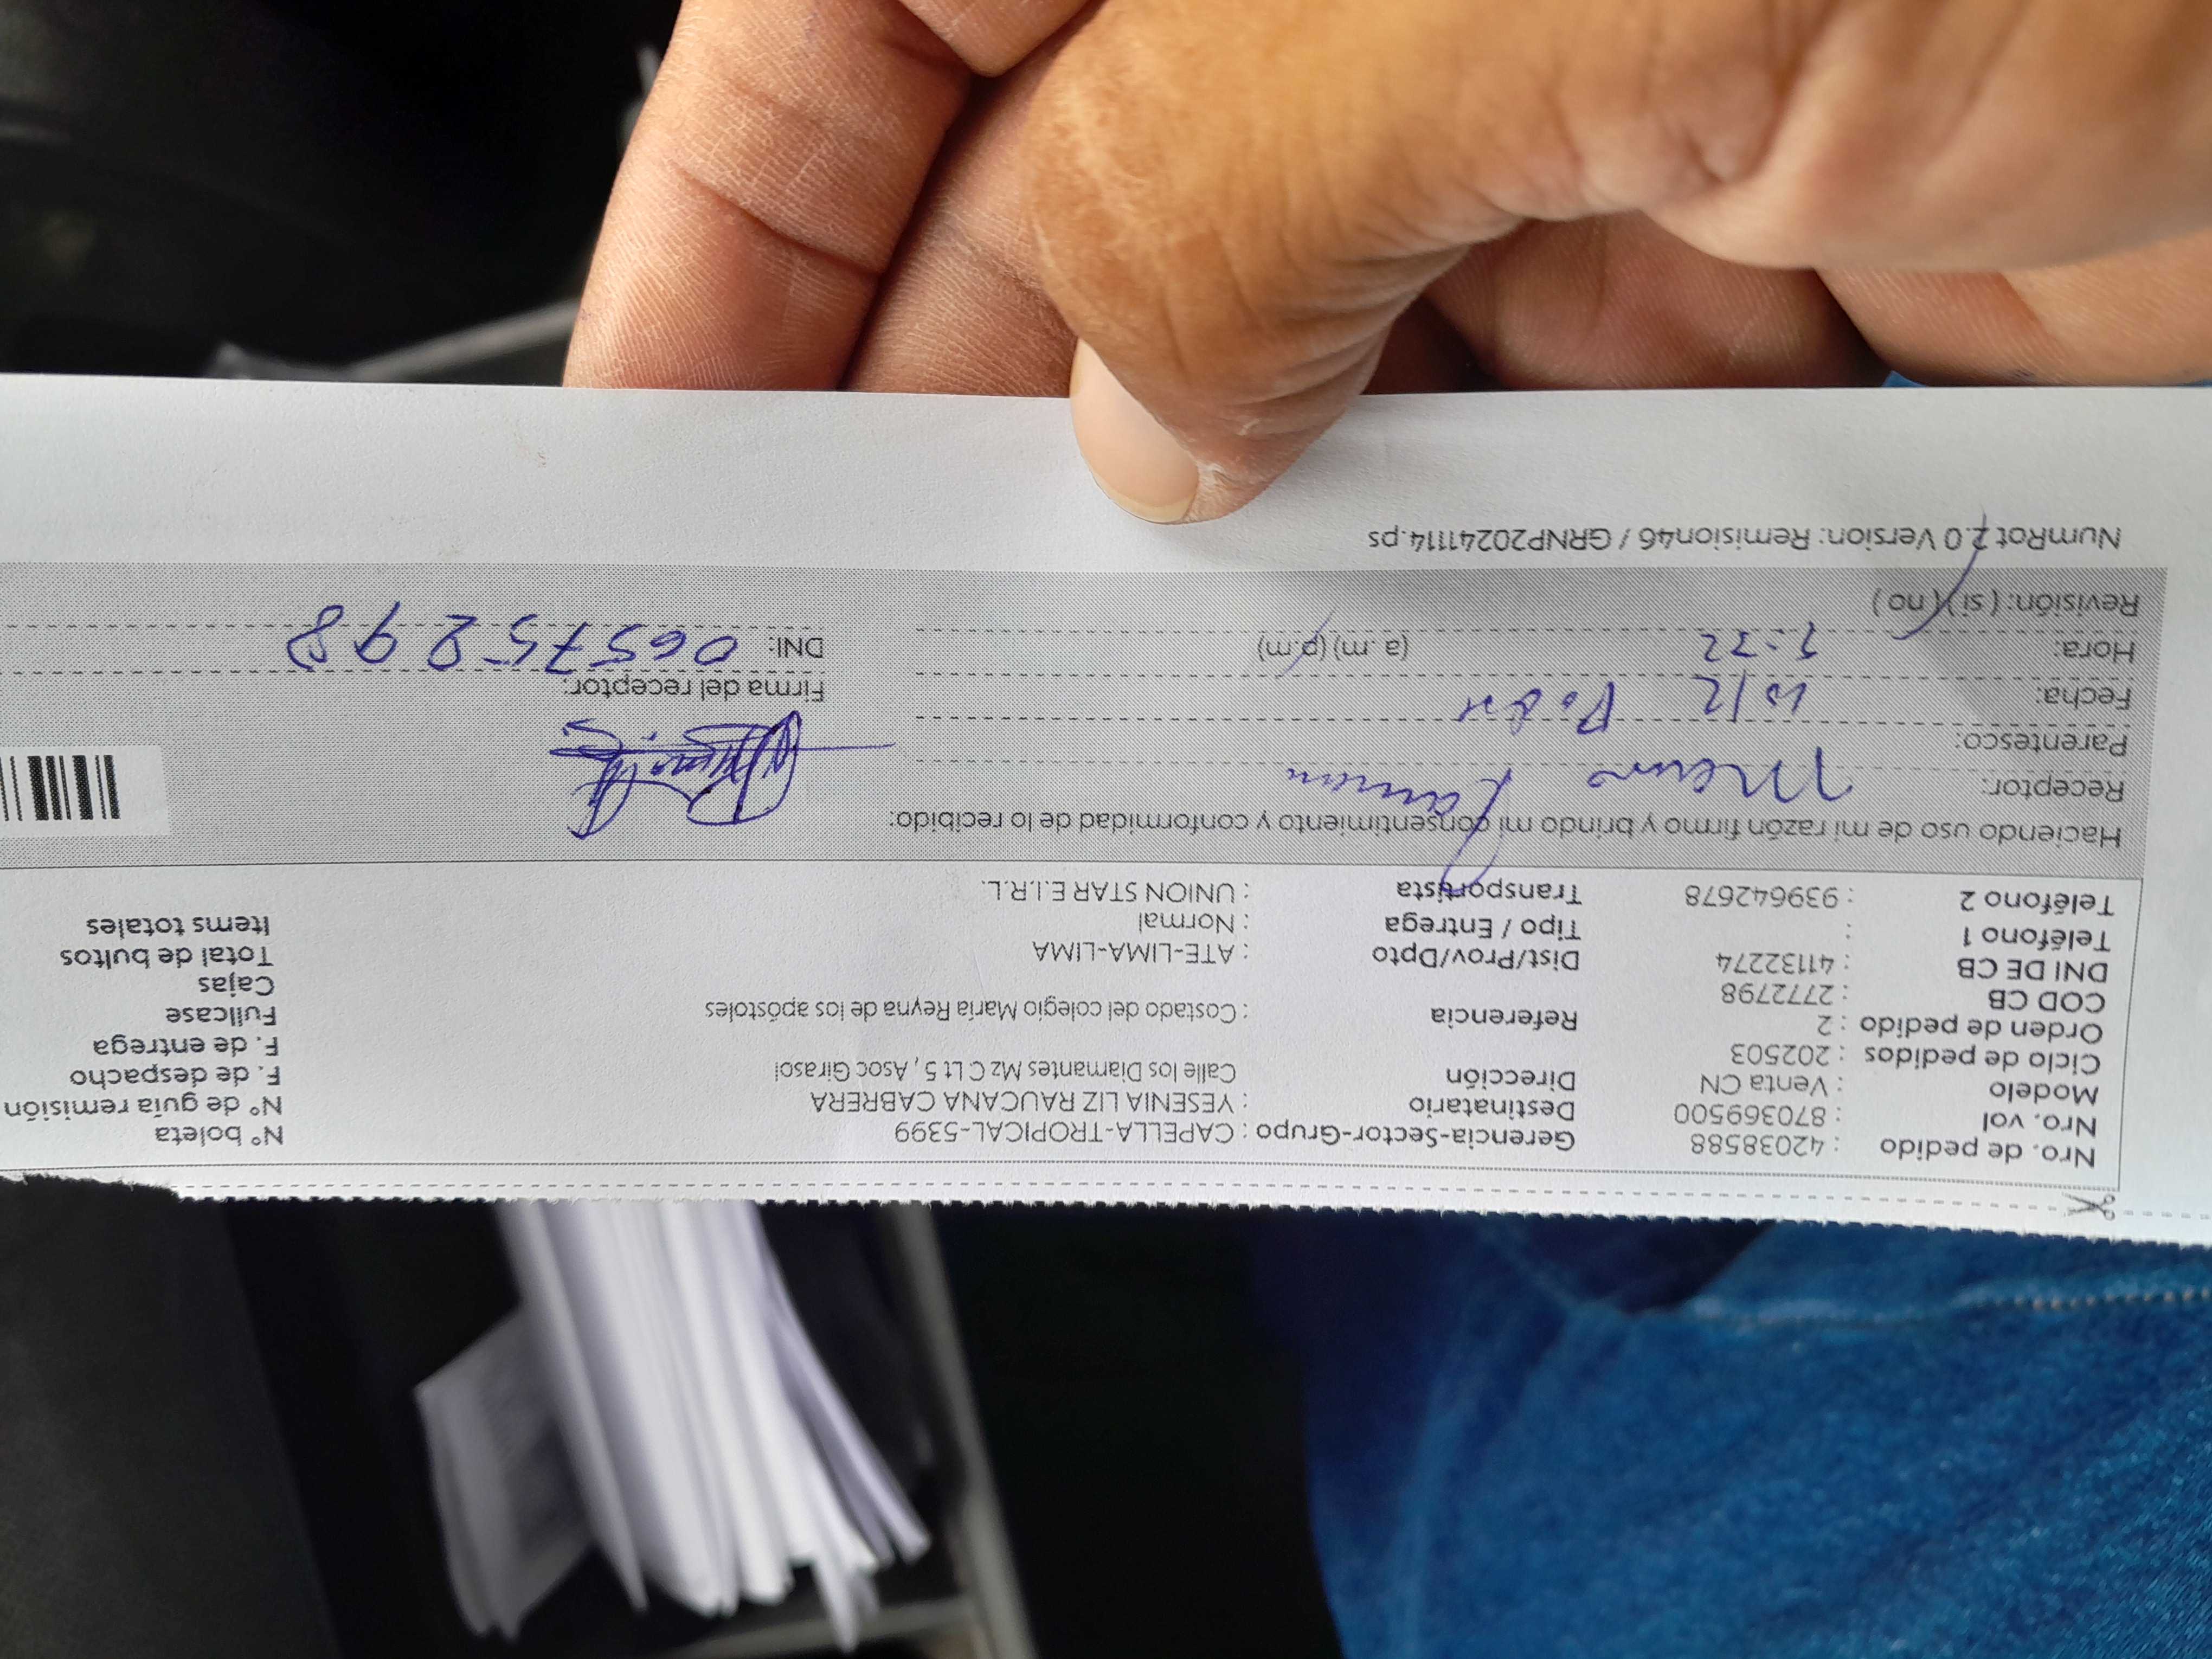 Nro. de pedido : 42038588 Gerencia-Sector-Grupo : CAPELLA-TROPICAL-5399 N° boleta
Nro. vol : 870369500 Destinatario : YESENIA LIZ RAUCANA CABRERA N° de guía remisión
Modelo : Venta CN Dirección Calle los Diamantes Mz C Lt 5 , Asoc Girasol F. de despacho
Ciclo de pedidos : 202503 F. de entrega
Orden de pedido : 2 Referencia : Costado del colegio María Reyna de los apóstoles Fullcase
COD CB : 2772798 Cajas
DNI DE CB : 41132274 Dist/Prov/Dpto : ATE-LIMA-LIMA Total de bultos
Teléfono 1 : Tipo / Entrega : Normal Items totales
Teléfono 2 : 939642678 Transportista : UNION STAR E.I.R.L.
Haciendo uso de mi razón firmo y brindo mi consentimiento y conformidad de lo recibido:
Receptor:
Parentesco:
Fecha: Firma del receptor:
Hora: (a .m) (p.m) DNI: 06575898
Revisión: ( si ) ( no )
NumRot 2.0 Version: Remision46 / GRNP20241114.ps